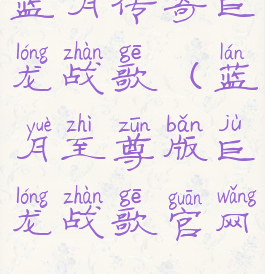 蓝月传奇巨
lóng zhàn gē lán
龙战歌（蓝
yuè zhì zūn bǎn jù
月至尊版巨
lóng zhàn gē guān wǎng
龙战歌官网